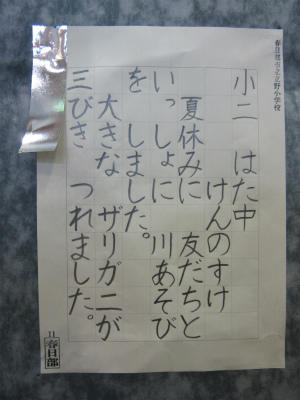 春日部市立立野小学校
小二 はた中
けんのすけ
夏休みに 友だちと
いっしょに 川あそび
を しました。
大きな ザリガニが
三びき つれました。
11
春日部